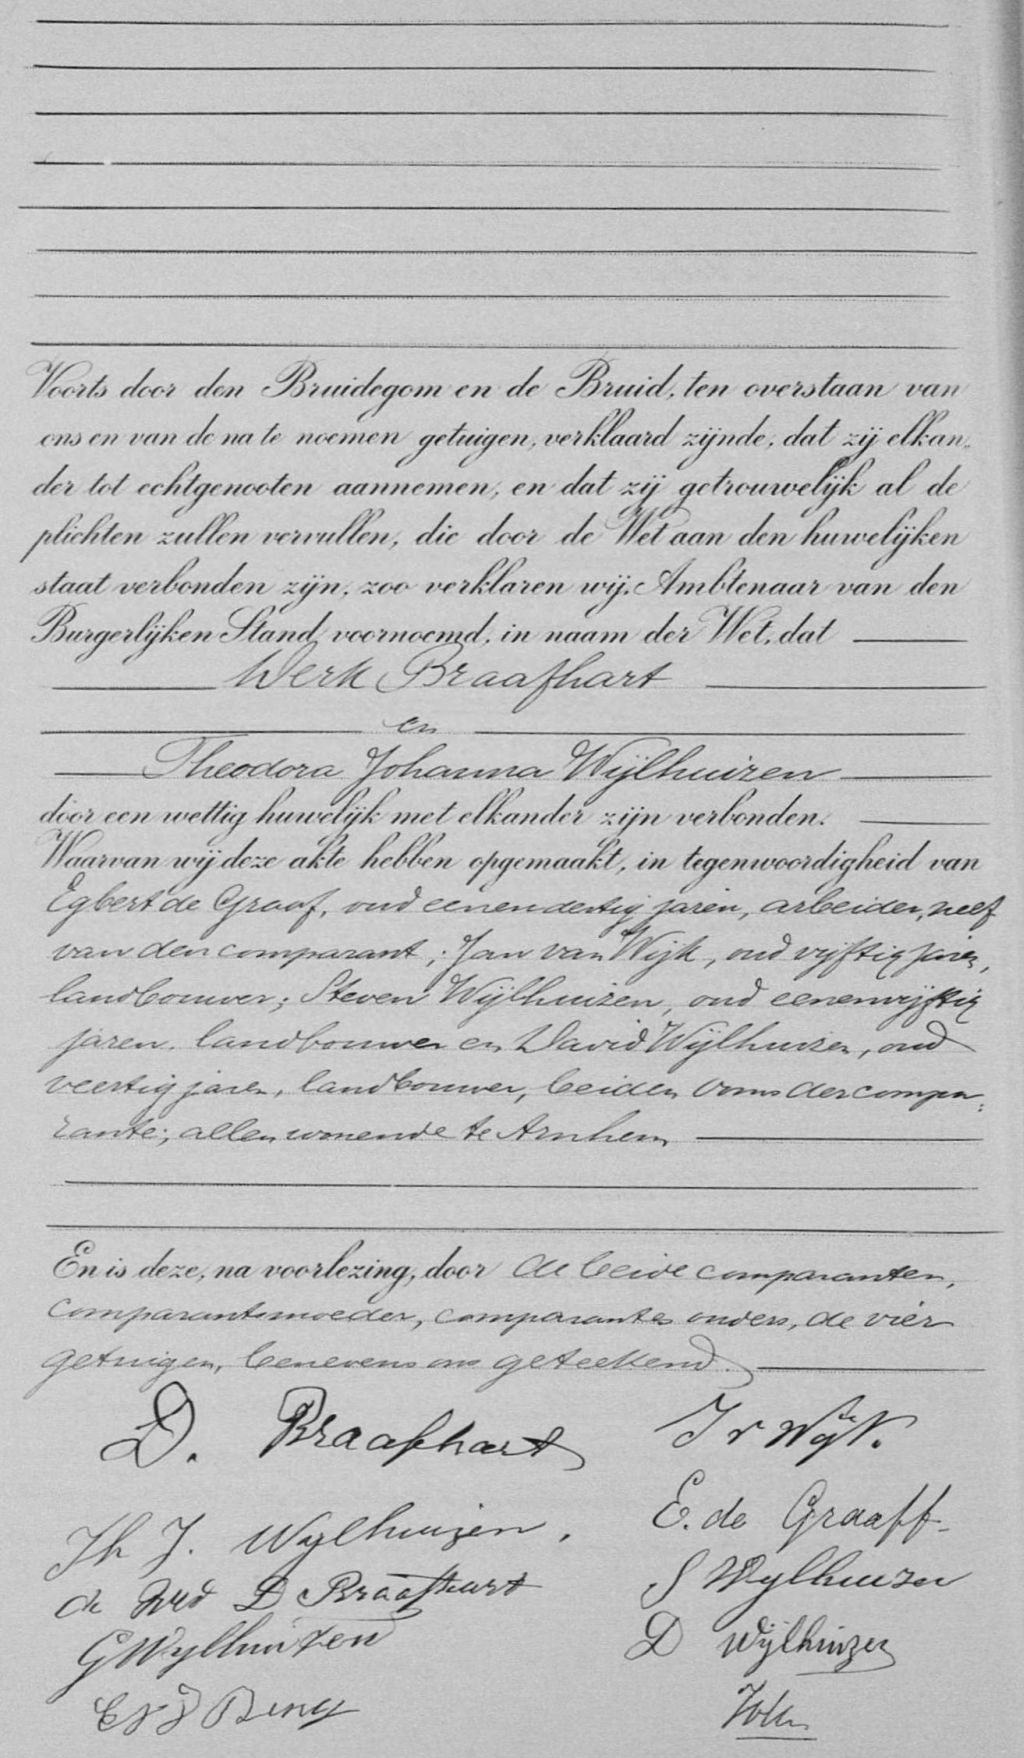 Voorts door den Bruidegom en de Bruid, ten overstaan van
ons en van de na te noemen getuigen, verklaard zijnde, dat zij elkan-
der tot echtgenooten aannemen, en dat zij getrouwelijk al de
plichten zullen vervullen, die door de Wet aan den huwelijken
staat verbonden zijn, zoo verklaren wij, Ambtenaar van den
Burgerlijken Stand voornoemd, in naam der Wet, dat
Derk Braafhart
en
Theodora Johanna Wijlhuizen
door een wettig huwelijk met elkander zijn verbonden.
Waarvan wij deze akte hebben opgemaakt, in tegenwoordigheid van
Egbert de Graaf, oud eenendertig jaren, arbeider, neef
van den comparant; Jan van Wijk, oud vijftig jaren,
landbouwer; Steven Wijlhuizen, oud eenenvijftig
jaren, landbouwer en David Wijlhuizen, oud
veertig jaren, landbouwer, beiden ooms der compa-
rante; allen wonende te Arnhem
En is deze, na voorlezing, door de beide comparanten,
comparantsmoeder, comparantes ouders, de vier
getuigen, benevens ons geteekend.
D. Braafhart
J v Wijk.
Th J. Wylhuizen,
E. de Graaff
de Wed D Braafhart
S Wylhuizen
G Wylhuizen
D Wijlhuizen